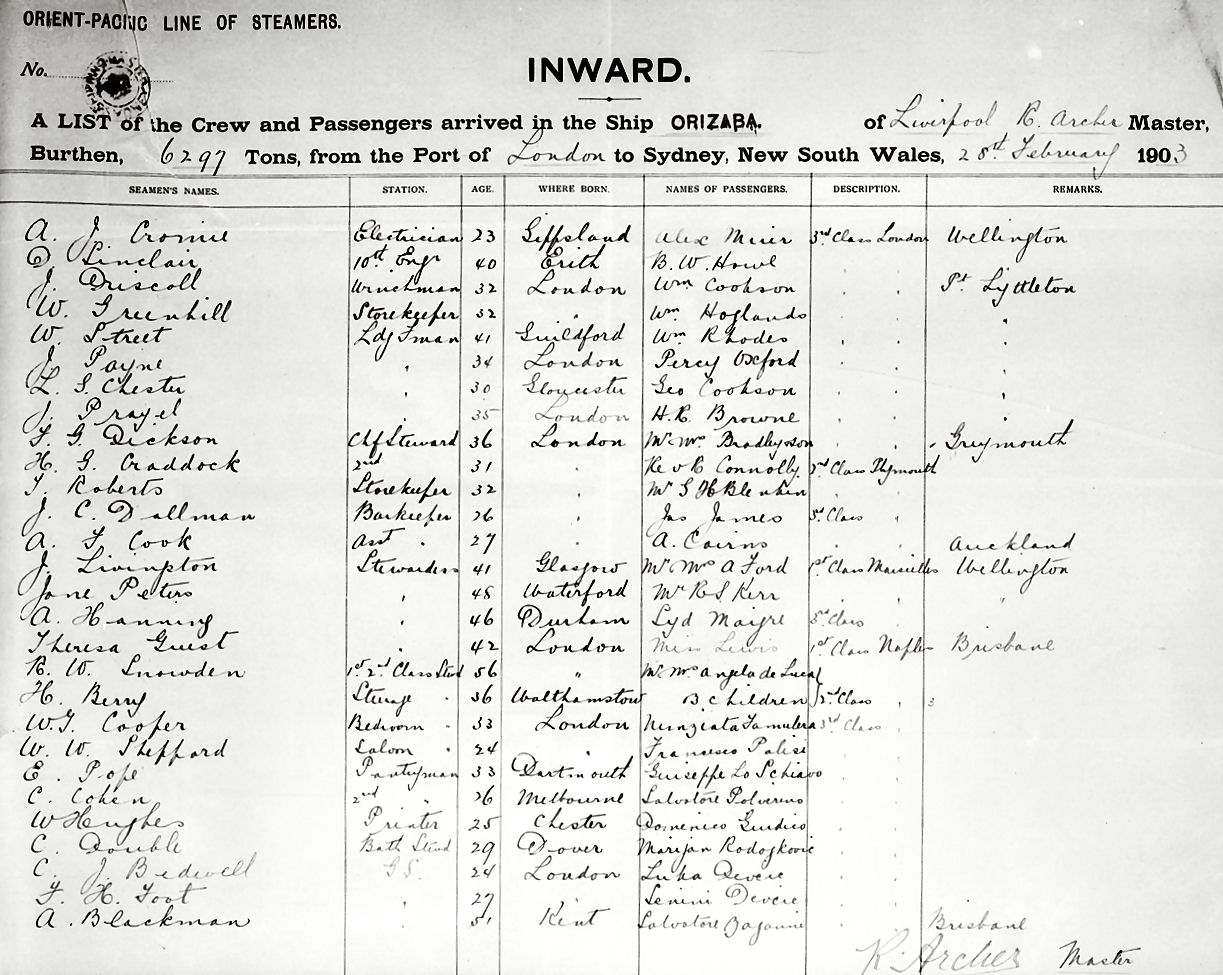 ORIENT-PACIFIC LINE OF STEAMERS.
No.
INWARD.
A LIST of the Crew and Passengers arrived in the Ship ORIZABA. of Liverpool R. Archer Master,
Burthen, 6297 Tons, from the Port of London to Sydney, New South Wales, 28th February 1903
SEAMEN'S NAMES. STATION. AGE. WHERE BORN. NAMES OF PASSENGERS. DESCRIPTION. REMARKS.
A. J. Cromie Electrician 23 Gippsland Alex Muir 3rd Class London Wellington
D. Sinclair 10th Engr 40 Erith B. W. Howl
J. Driscoll Winchman 32 London Wm Cookson Pt Lyttleton
W. Greenhill Storekeeper 32 " Wm Hoglands "
W. Street Ldg Fman 41 Guildford Wm Rhodes "
J. Payne " 34 London Percy Oxford "
L. S Chester " 30 Gloucester Geo Cookson "
J. 35 London H. R. Browne "
F. G. Dickson Chf Steward 36 London Mr Mrs Greymouth
H. G. Craddock 2nd 31 " Rev R Connolly 2nd Class Plymouth
T. Roberts Storekeeper 32 " Mr S H
J. C. Dallman Barkeeper 26 " Jas James 3rd Class "
A. F. Cook Asst " 27 " A. Cairns Auckland
J. Livington Stewardess 41 Glasgow Mr Mrs A Ford 1st Class Marseilles Wellington
Jane Peters " 48 Waterford Mr R. S. Kerr "
A. Hanning " 46 Durham Syd 3rd Class
Theresa Guest " 42 London Miss Lewis 1st Class Naples Brisbane
R. W. Snowden 1st 2nd Class Stwd 56 " Mr Mrs Angelo de Luca
H. Berry Steerage " 36 Walthamstow 3 children 2nd Class " 3
W. J. Cooper Bedroom " 33 London Nunziata 3rd Class "
W. W. Sheppard Saloon " 24 " Francesco
E. Pope Pantryman 33 Dartmouth Guiseppe Lo Schiavo
C. Cohen 2nd " 26 Melbourne Salvatore Polverino
W Hughes Printer 25 Chester Domenico Giudico
C. Double Bath Stwd 29 Dover Marijan
C. J. Bedwell G S. 24 London Luka
F. H. Foot " 27
A. Blackman " 51 Kent Salvatore Brisbane
R. Archer Master